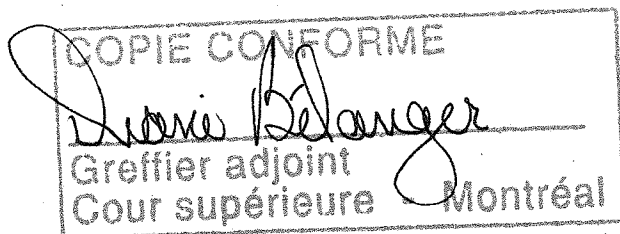 COPIE CONFORME
Bélanger
Greffier adjoint
Cour supérieure - Montréal